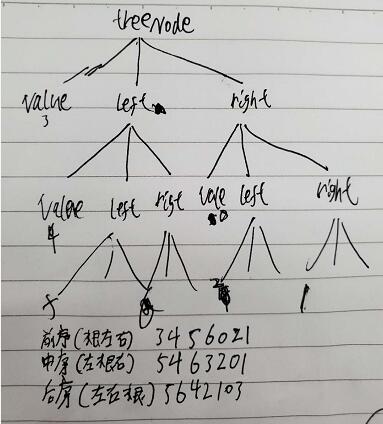 treeNode
value left right
3
value left right vale left right
4 0
5 2 1
前序(根左右) 3456021
中序(左根右) 5463201
后序(左右根) 5642103